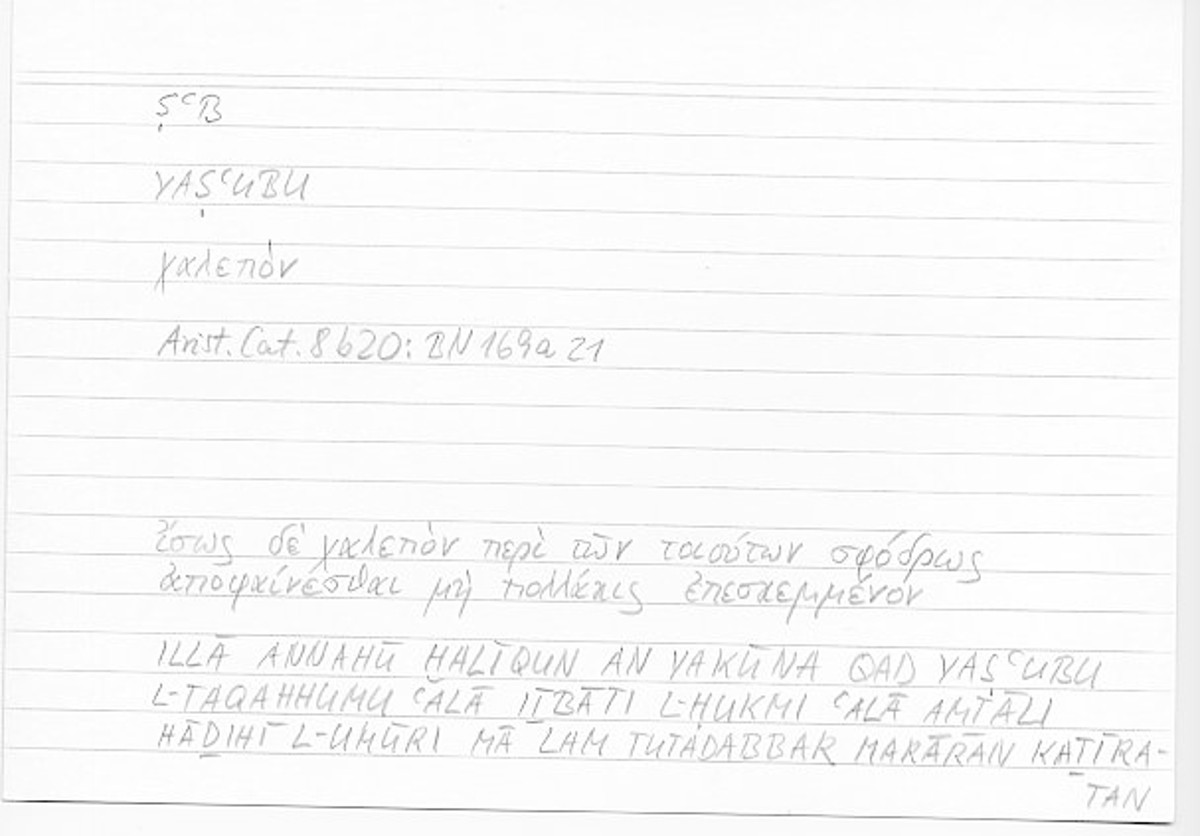 ṢʿB
YAṢʿUBU
χαλεπὸν
Arist. Cat. 8 b 20: BN 169a 21
ἴσως δὲ χαλεπὸν περὶ τῶν τοιούτων σφόδρως
ἀποφαίνεσθαι μὴ πολλάκις ἐπεσκεμμένον
ILLĀ ANNAHŪ ḪALĪQUN AN YAKŪNA QAD YAṢʿUBU
L-TAQAHHUMU ʿALĀ IṮBĀTI L-ḤUKMI ʿALĀ AMṮĀLI
HĀḎIHĪ L-UMŪRI MĀ LAM TUTADABBAR MARĀRĀN KAṮĪRA-
TAN